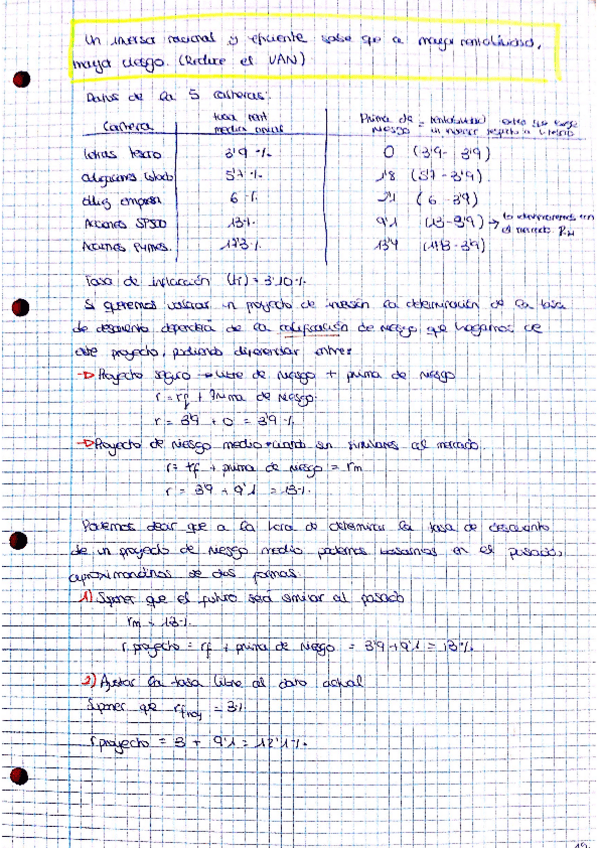 Un inversor racional y eficiente sabe que a mayor rentabilidad,
mayor riesgo. (Reduce el VAN)
Datos de la 5 carteras:
Cartera
tasa rent
media anual
Prima de riesgo = rentabilidad extra que exige
un inversor respecto a
Letras tesoro 3'9 % 0 (3'9 - 3'9)
Obligaciones 5'7 % 1'8 (5'7 - 3'9)
Oblig empresa 6 % 2'1 (6 - 3'9)
Acciones SP500 13 % 9'1 (13 - 3'9) → lo
el mercado
Acciones Pymes. 17'3 % 13'4 (17'3 - 3'9)
Tasa de inflación = 3'10 %
Si queremos valorar un proyecto de inversión la determinación de la tasa
de descuento dependerá de la calificación de riesgo que hagamos de
este proyecto, pudiendo diferenciar entre:
→ Proyecto seguro → libre de riesgo + prima de riesgo
r = rf + Prima de riesgo.
r = 3'9 + 0 = 3'9 %
→ Proyecto de riesgo medio son similares al mercado.
r = rf + prima de riesgo = rm
r = 3'9 + 9'1 = 13 %
Podemos decir que a la hora de determinar la tasa de descuento
de un proyecto de riesgo medio podemos basarnos en el pasado,
aproximándonos de dos formas
1) Suponer que el futuro será similar al pasado
rm = 13 %
r proyecto = rf + prima de riesgo = 3'9 + 9'1 = 13 %
2) Ajustar la tasa libre al dato actual
Suponer que rf hoy = 3 %
r proyecto = 3 + 9'1 = 12'1 %